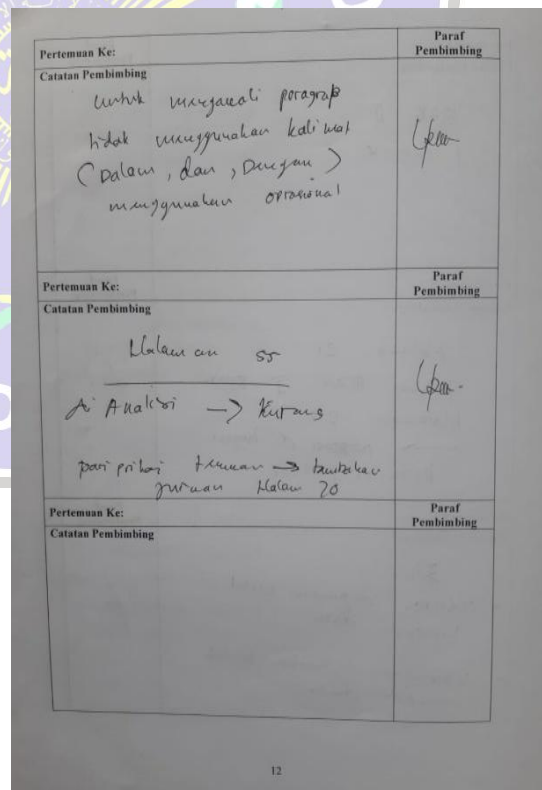 Pertemuan Ke:
Paraf
Pembimbing
Catatan Pembimbing
untuk mengawali paragrap
tidak menggunakan kalimat
(Dalam, dan, Dengan)
menggunakan oprasional
Pertemuan Ke:
Paraf
Pembimbing
Catatan Pembimbing
Halaman 55
di Analisi → Kurang
temuan → tambahkan
Halam 20
Pertemuan Ke:
Paraf
Pembimbing
Catatan Pembimbing
12